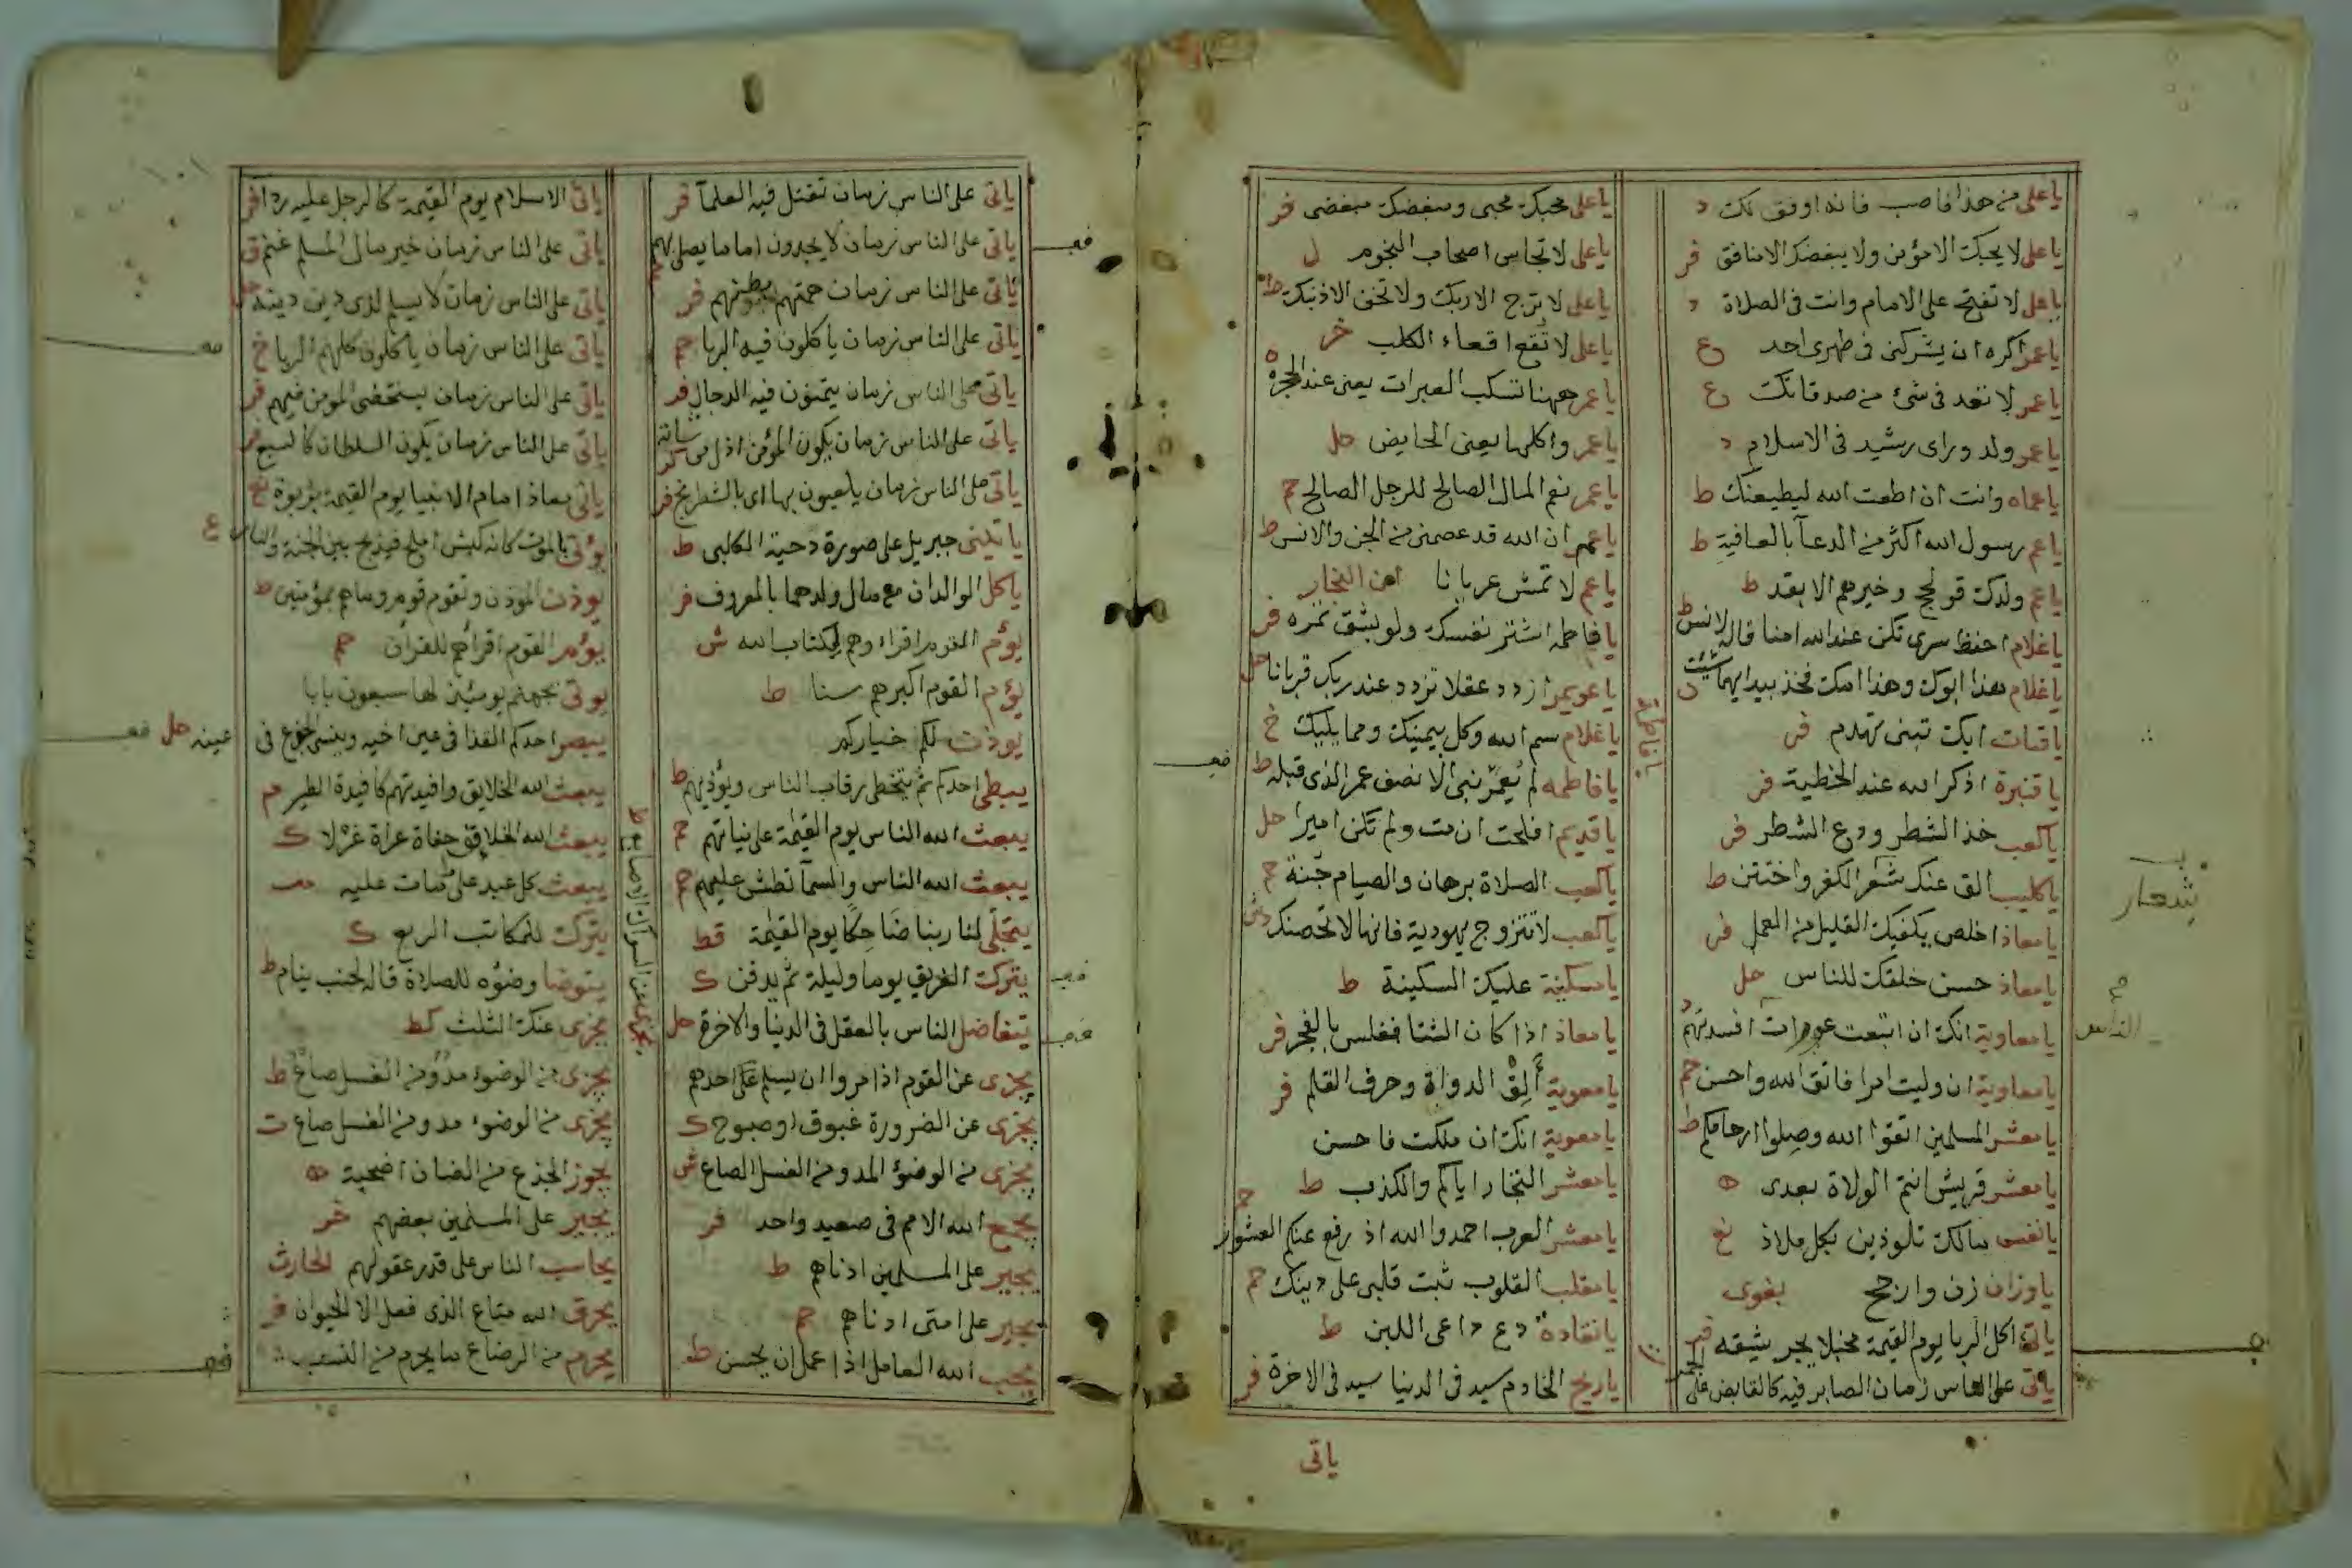 يا على من هذا فاصب فانه اوفق لك د
يا على لا يحبك الا مؤمن ولا يبغضك الا منافق فر
يا على لا تفتح على الامام وانت فى الصلاة د
يا عمر اكره ان يشركنى فى طهرى احد ع
يا عمر لا تعد فى شئ من صدقاتك ع
يا عمر ولد وراى رشيد فى الاسلام د
يا عماه وانت ان اطعت الله ليطيعنك ط
يا عم رسول الله اكثر من الدعآ بالعافية ط
يا عم ولدك قولج وخيرهم الابعد ط
يا غلام احفظ سرى تكن عند الله امنا قاله لانس ط
يا غلام هذا ابوك وهذا امك فخذ بيد ايهما شئت ن
يا قباث ايك تبنى تهدم فر
يا قنبرة اذكر الله عند الخطية فر
يا كعب خذ الشطر ودع الشطر فر
يا كليب الق عنك شعر الكفر واختتن ط
يا معاذ اخلص يكفيك القليل من العمل فر
يا معاذ حسن خلقك للناس حل
يا معاوية انك ان اتبعت عورات افسدتهم د
يا معاوية ان وليت امرا فاتق الله واحسن حم
يا معشر المسلمين اتقوا الله وصلوا ارحامكم ط
يا معشر قريش انتم الولاة بعدى ه
يا نفس مالك تلوذين بكل ملاذ نع
يا وزان زن وارجح بغوى
ياتى اكل الربا يوم القيمة مخبلا يجر شقه فر
ياتى على الناس زمان الصابر فيه كالقابض على الجمر
يا على محبك محبى ومبغضك مبغضى فر
يا على لا تجالس اصحاب النجوم ل
يا على لا ترج الا ربك ولا تخف الا ذنبك ط
يا على لا تقع اقعاء الكلب خر
يا عمر ههنا تسكب العبرات يعنى عند الحجر ه
يا عمر واكلها يعنى الحايض حل
يا عمر نعم المال الصالح للرجل الصالح حم
يا عم ان الله قد عصمنى من الجن والانس ط
يا عم لا تمش عريانا ابن النجار
يا فاطمه اشتر نفسك ولو بشق تمره فر
يا عويمر ازدد عقلا تزدد عند ربك قربانا حل
يا غلام سم الله وكل بيمينك ومما يليك خ
يا فاطمه لم يعمر نبى الا نصف عمر الذى قبله ط
يا قديم افلحت ان مت ولم تكن اميرا حل
يا كعب الصلاة برهان والصيام جنة حم
يا كعب لا تتزوج يهودية فانها لا تحصنك
يا مسكينة عليك السكينة ط
يا معاذ اذا كان الشتا فغلس بالفجر فر
يا معوية ألق الدواة وحرف القلم فر
يا معوية انك ان ملكت فاحسن
يا معشر التجار اياكم والكذب ط
يا معشر العرب احمدوا الله اذ رفع عنكم العشور حم
يا مقلب القلوب ثبت قلبى على دينك حم
يا نقادة دع داعى اللبن ط
يا ريح الخادم سيد فى الدنيا سيد فى الاخرة فر
يا فاطمة
شعار
الناس
ياتى
ياتى على الناس زمان تقتل فيه العلمآ فر
ياتى على الناس زمان لا يجدون اماما يصلى بهم
ياتى على الناس زمان همتهم بطنهم فر
ياتى على الناس زمان ياكلون فيه الربا حم
ياتى على الناس زمان يتمنون فيه الدجال فر
ياتى على الناس زمان يكون المؤمن اذل من شاته كر
ياتى على الناس زمان يلعبون بها اى بالشطرنج فر
ياتينى جبريل على صورة دحية الكلبى ط
ياكل الوالدان مع مال ولدهما بالمعروف فر
يؤم القوم اقراوهم لكتاب الله ش
يؤم القوم اكبرهم سنا ط
يوذن لكم خياركم
يبطى احدكم ثم يتخطى رقاب الناس ويؤذيهم ط
يبعث الله الناس يوم القيمة على نياتهم حم
يبعث الله الناس والسمآ تطش عليهم حم
يتجلى لنا ربنا ضاحكا يوم القيمة قط
يترك الغريق يوما وليلة ثم يدفن ك
يتفاضل الناس بالعقل فى الدنيا والاخرة حل
يجزى عن القوم اذا مروا ان يسلم على احدهم
يجزى عن الضرورة غبوق او صبوح ك
يجزى من الوضؤ المد ومن الغسل الصاع ش
يجمع الله الامم فى صعيد واحد فر
يجير على المسلمين ادناهم ط
يجير على امتى ادناهم حم
يحب الله العامل اذا عمل ان يحسن ط
ياتى الاسلام يوم القيمة كالرجل عليه ردا فر
ياتى على الناس زمان خير مال المسلم غنم ق
ياتى على الناس زمان لا يسلم لذى دين دينه حل
ياتى على الناس زمان ياكلون كلهم الربا خ
ياتى على الناس زمان يستخفى المومن فيهم فر
ياتى على الناس زمان يكون السلطان كالسبع
ياتى معاذ امام الانبيا يوم القيمة بربوة نع
يؤتى بالموت كانه كبش املح فيذبح بين الجنة والنار ع
يوذن الموذن وتقوم قوم وما هم بمؤمنين ط
يؤمر القوم اقرأهم للقرآن حم
يوتى بجهنم يومئذ لها سبعون بابا
يبصر احدكم القذا فى عين اخيه وينسى الجذع فى عينه حل
يبعث الله الخلايق وافيدتهم كافيدة الطير م
يبعث الله الخلايق حفاة عراة غرلا ك
يبعث كل عبد على ما مات عليه
يترك للمكاتب الربع ك
يتوضا وضؤه للصلاة قاله لجنب ينام ط
يجزى عنك الثلث كط
يجزى من الوضوء مد ومن الغسل صاع ط
يجزى من الوضوء مد ومن الغسل صاع ت
يجوز الجذع من الضان اضحية ه
يجير على المسلمين بعضهم خر
يحاسب الناس على قدر عقولهم الحارث
يحرق الله متاع الذى فعل الا الحيوان فر
يحرم من الرضاع ما يحرم من النسب